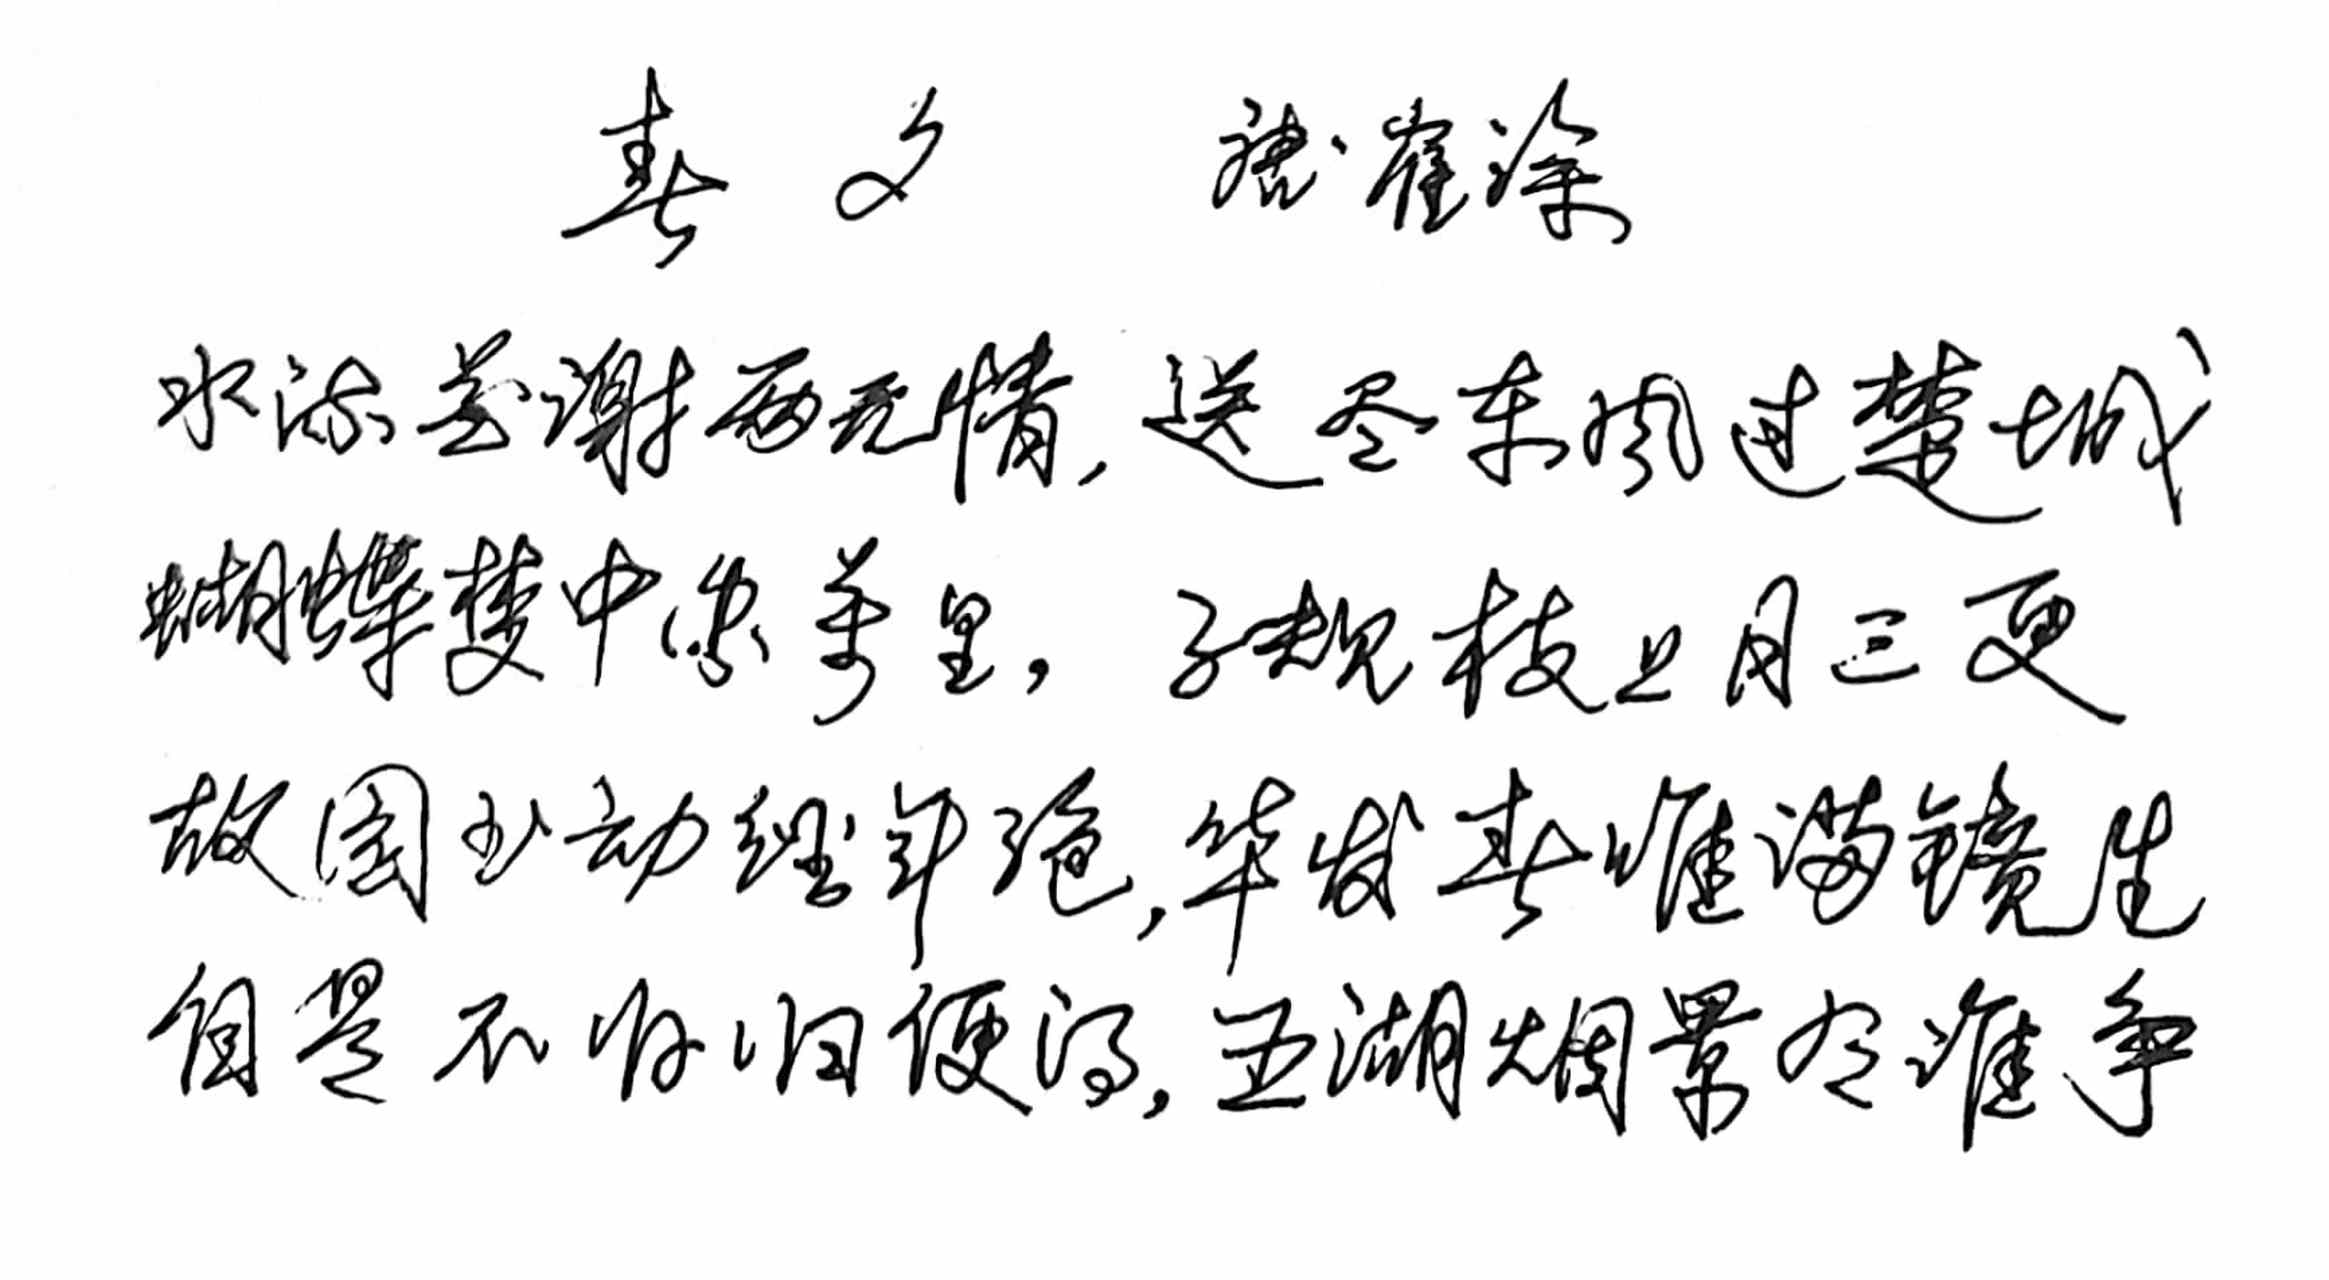 春夕 唐·崔涂
水流花谢两无情，送尽东风过楚城
蝴蝶梦中家万里，子规枝上月三更
故园书动经年绝，华发春唯满镜生
自是不归归便得，五湖烟景有谁争